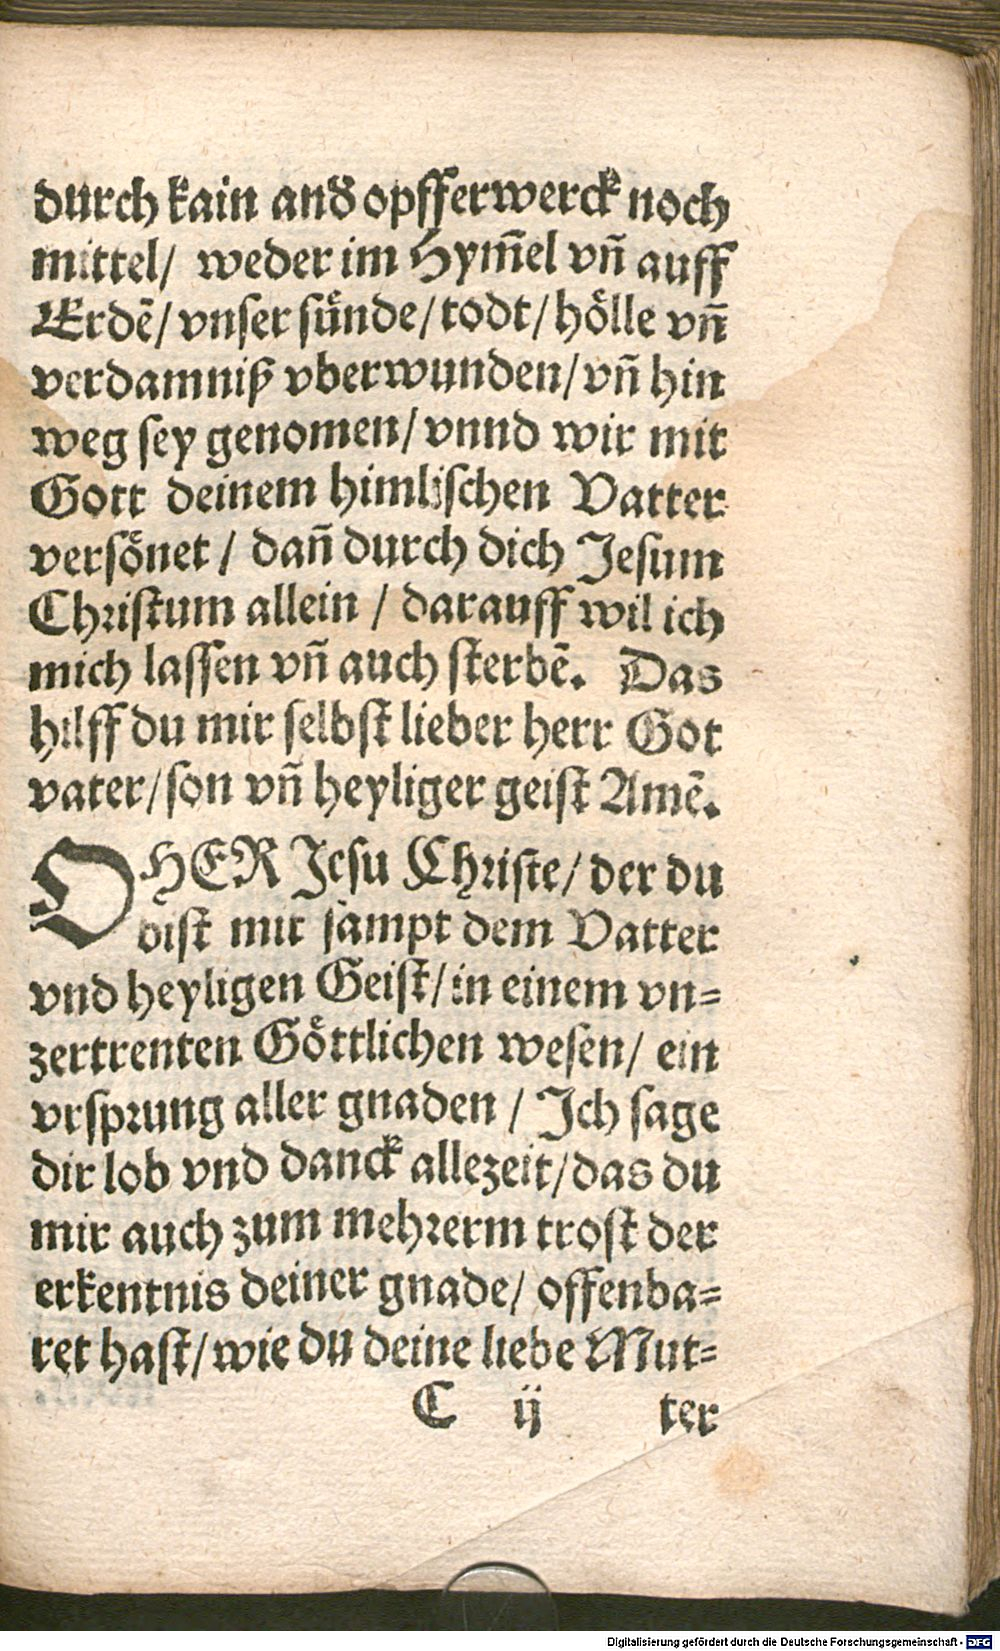 durch kain and̃ opfferwerck noch
mittel/ weder im Hym̃el vñ auff
Erdẽ/ vnser sünde/ todt/ hölle vñ
verdamniß vberwunden/ vñ hin
weg sey genomen/ vnnd wir mit
Gott deinem himlischen Vatter
versönet / dañ durch dich Jesum
Christum allein / darauff wil ich
mich lassen vñ auch sterbẽ. Das
hilff du mir selbst lieber herr Got
vater/ son vñ heyliger geist Amẽ.
O HER Jesu Christe/ der du
bist mit sampt dem Vatter
vnd heyligen Geist/ in einem vn=
zertrenten Göttlichen wesen/ ein
vrsprung aller gnaden / Ich sage
dir lob vnd danck allezeit/ das du
mir auch zum mehrerm trost der
erkentnis deiner gnade/ offenba=
ret hast/ wie du deine liebe Mut=
C ij ter
Digitalisierung gefördert durch die Deutsche Forschungsgemeinschaft - DFG